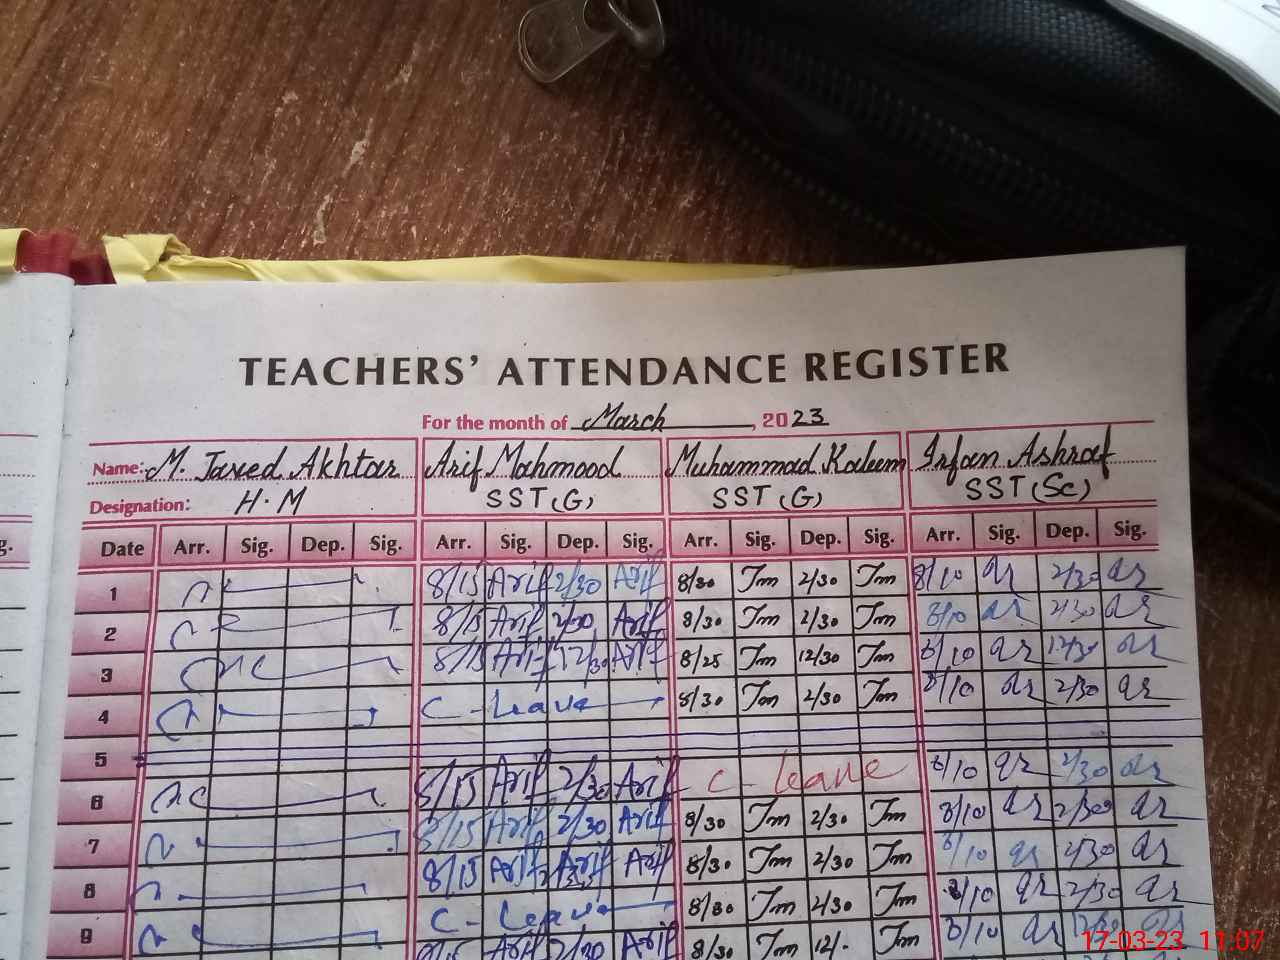 TEACHERS' ATTENDANCE REGISTER
For the month of March, 2023
Name: M. Javed Akhtar Arif Mahmood Muhammad Kaleem Irfan Ashraf
Designation: H.M SST (G) SST (G) SST (Sc)
g. Date Arr. Sig. Dep. Sig. Arr. Sig. Dep. Sig. Arr. Sig. Dep. Sig. Arr. Sig. Dep. Sig.
1 8/15 Arif 2/30 Arif 8/30 Jm 2/30 Jm 8/10 2/30
2 8/15 Arif 2/30 Arif 8/30 Jm 2/30 Jm 8/10 2/30
3 8/15 Arif 12/30 Arif 8/25 Jm 12/30 Jm 8/10 12/30
4 C-Leave 8/30 Jm 2/30 Jm 8/10 2/30
5
6 8/15 Arif 2/30 Arif C-Leave 8/10 2/30
7 8/15 Arif 2/30 Arif 8/30 Jm 2/30 Jm 8/10 2/30
8 8/15 Arif Arif 8/30 Jm 2/30 Jm 8/10 2/30
9 C-Leave 8/30 Jm 2/30 Jm 8/10 2/30
8/15 Arif 2/30 Arif 8/30 Jm 12/. Jm 8/10
17-03-23 11:07